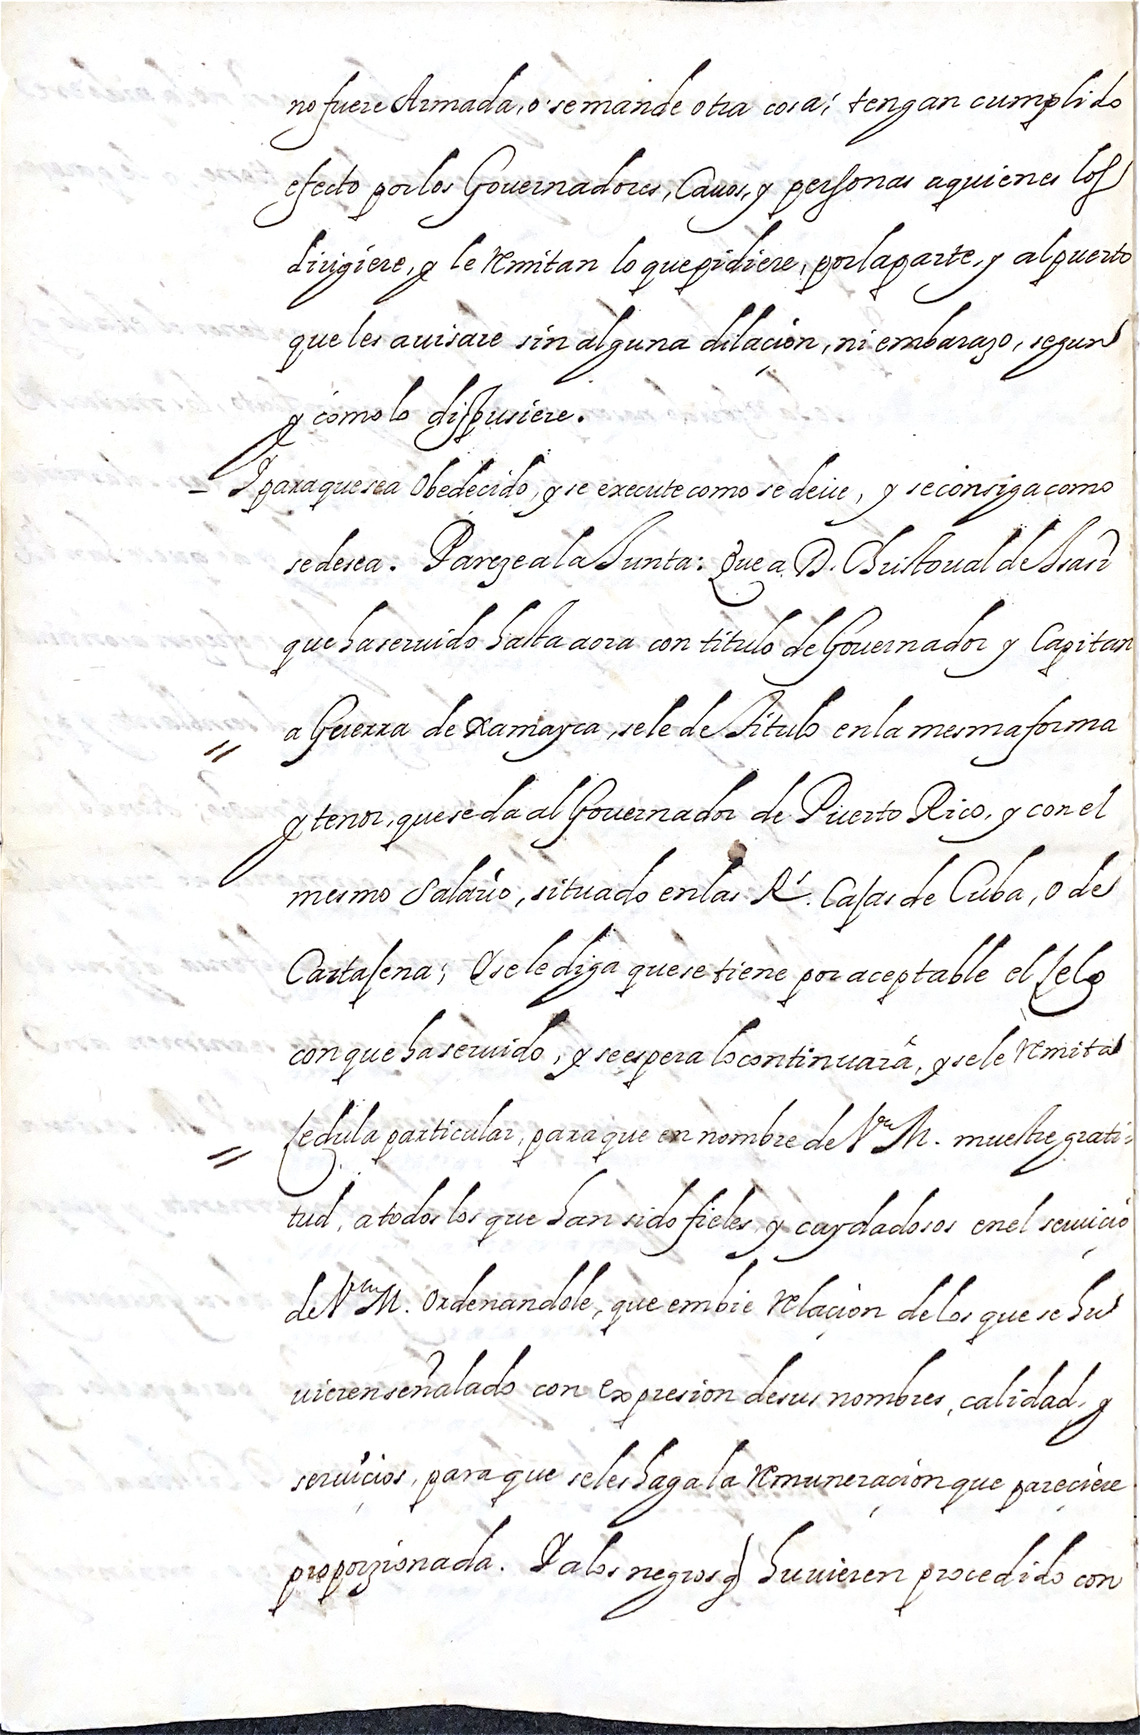 no fuere Armada, o se mande otra cosa; tengan cumplido
efecto por los Governadores, Cauos, y personas aquienes los
dirigiere, y le remitan lo que pidiere, por la parte, y al puerto
que les auisare sin alguna dilaçion, ni embarazo, segun
y como lo dispusiere.
– Y para que sea Obedeçido, y se execute como se deue, y se consiga como
se desea. Pareze a la Junta: Que a D. Christoual de Isasi
que ha seruido hasta aora con titulo de Governador y Capitan
a Guerra de Xamayca, se le de Titulo en la mesma forma
y tenor, que se da al Governador de Puerto Rico, y con el
mesmo Salario, situado en las Rs. Casas de Cuba, o de
Cartajena; Y se le diga que se tiene por aceptable el çelo
con que ha seruido, y se espera lo continuará, y se le remita
çedula particular, para que en nombre de Vra M. muestre grati=
tud, a todos los que han sido fieles, y cuydadosos en el seruiçio
de Vra M. Ordenandole, que embie relaçion de los que se hu
uieren señalado con expresion de sus nombres, calidad, y
seruiçios, para que se les haga la remuneraçion que pareçiere
proporzionada. Y a los negros q huuieren procedido con